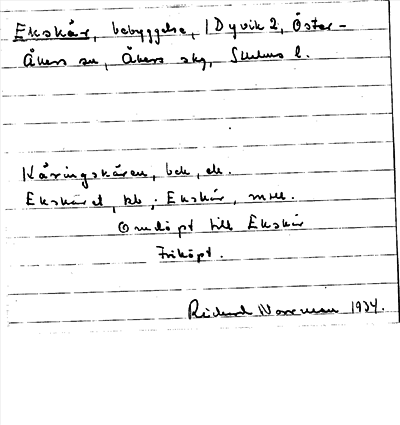 Ekskär, bebyggelse, 1 Dyvik 2, Öster-
Åkers sn, Åkers skg, Sthlms l.
Käringskären, bek, ek.
Ekskäret, kk; Ekskär, mtll.
Omdöpt till Ekskär
Friköpt.
Rickard Norrman 1934.